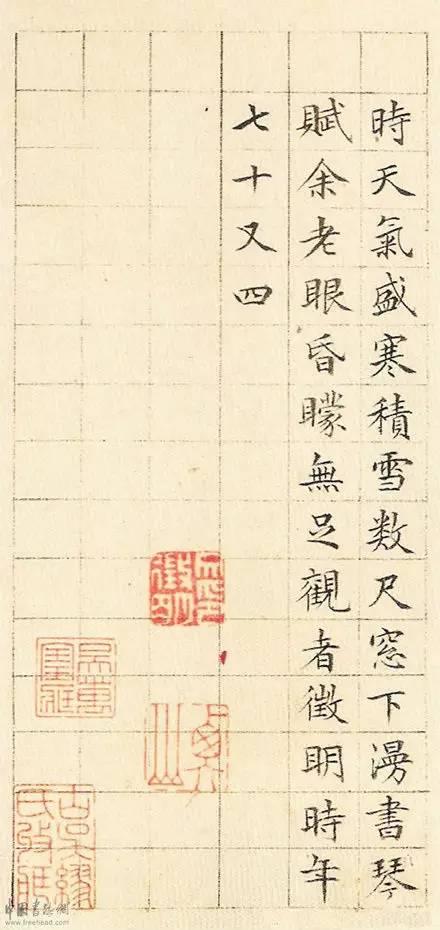 時天氣盛寒積雪数尺窓下漫書琴
賦余老眼昏矇無足觀者徵明時年
七十又四
中國書法網
www.freehead.com